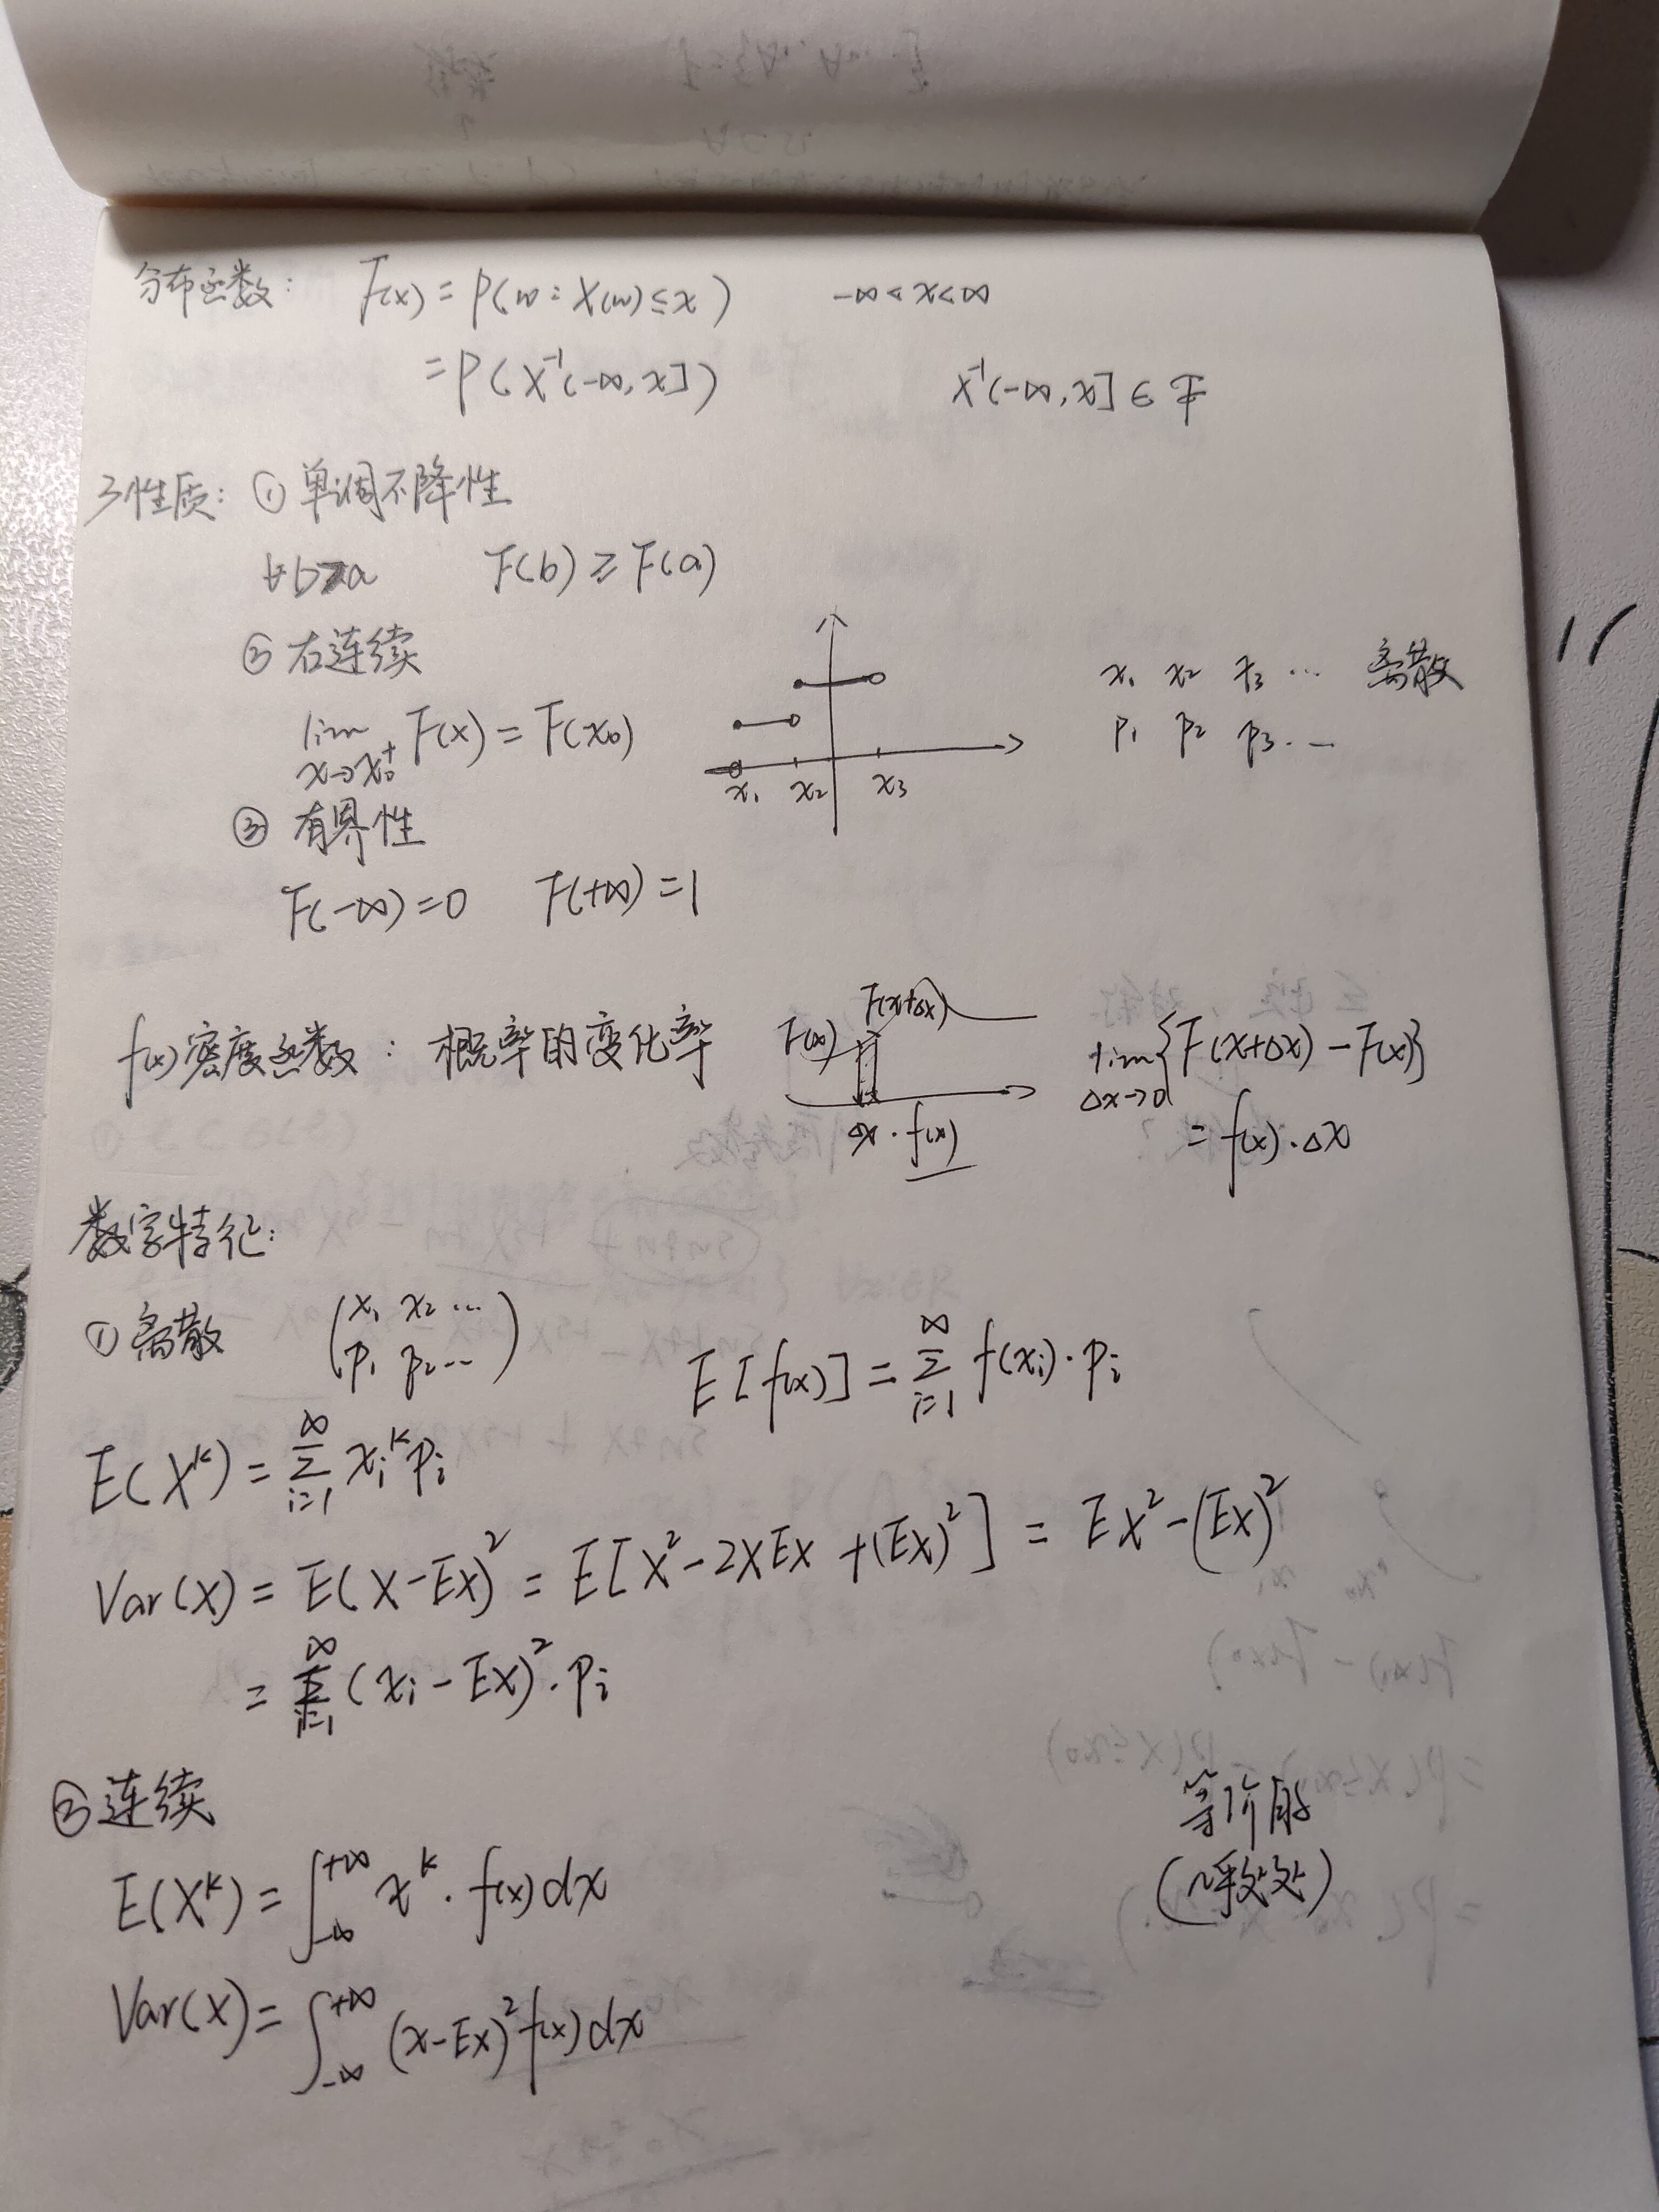 分布函数: F(x) = P(w: X(w) ≤ x) -∞ < x < ∞
= P(X⁻¹(-∞, x]) X⁻¹(-∞, x] ∈ F
3性质: ① 单调不降性
∀b>a F(b) ≥ F(a)
② 右连续
lim x→x₀⁺ F(x) = F(x₀)
x₁ x₂ x₃
x₁ x₂ x₃ ... 离散
p₁ p₂ p₃ ...
③ 有界性
F(-∞)=0 F(+∞)=1
f(x) 密度函数: 概率的变化率
F(x) F(x+Δx)
Δx · f(x)
lim Δx→0 {F(x+Δx) - F(x)}
= f(x)·Δx
数字特征:
① 离散 (x₁ x₂ ...
p₁ p₂ ...)
E[f(x)] = ∑ i=1 ∞ f(xᵢ)·pᵢ
E(Xᵏ) = ∑ i=1 ∞ xᵢᵏ pᵢ
Var(X) = E(X-EX)² = E[X²-2XEX+(EX)²] = EX²-(EX)²
= ∑ i=1 ∞ (xᵢ-EX)²·pᵢ
② 连续
E(Xᵏ) = ∫₋∞⁺∞ xᵏ·f(x)dx
Var(X) = ∫₋∞⁺∞ (x-EX)² f(x)dx